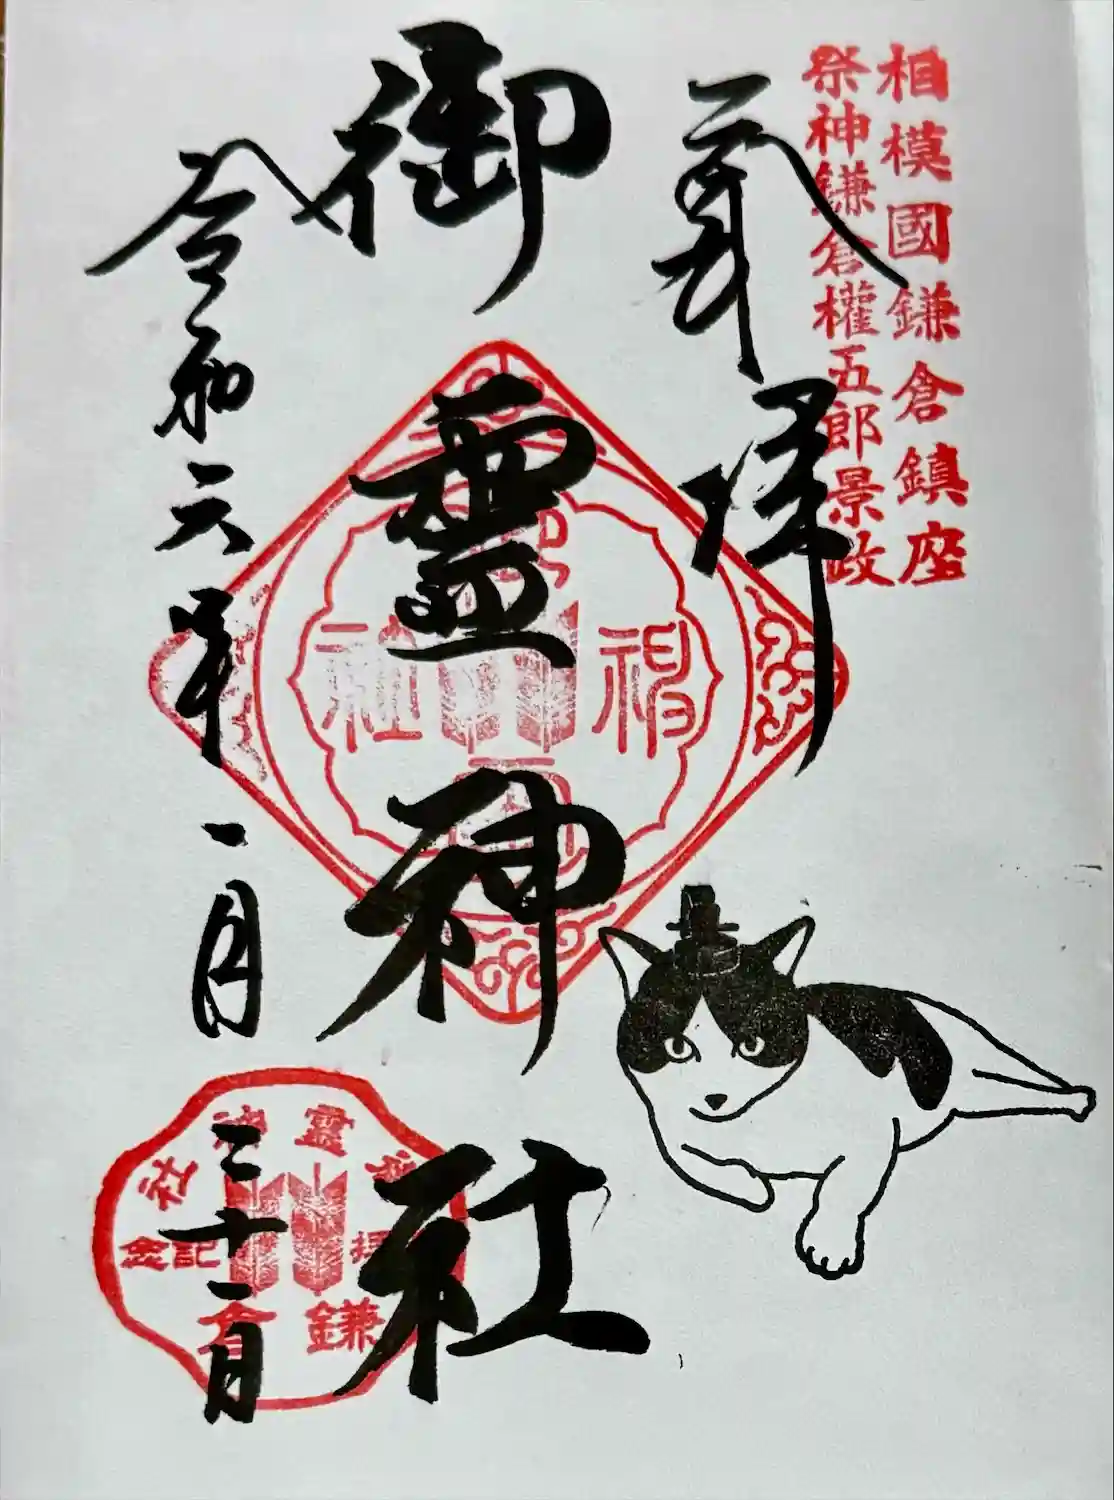 相模國鎌倉鎮座
祭神鎌倉權五郎景政
奉拝
御靈神社
令和六年一月三十一日
神社
靈
社
記念
鎌倉